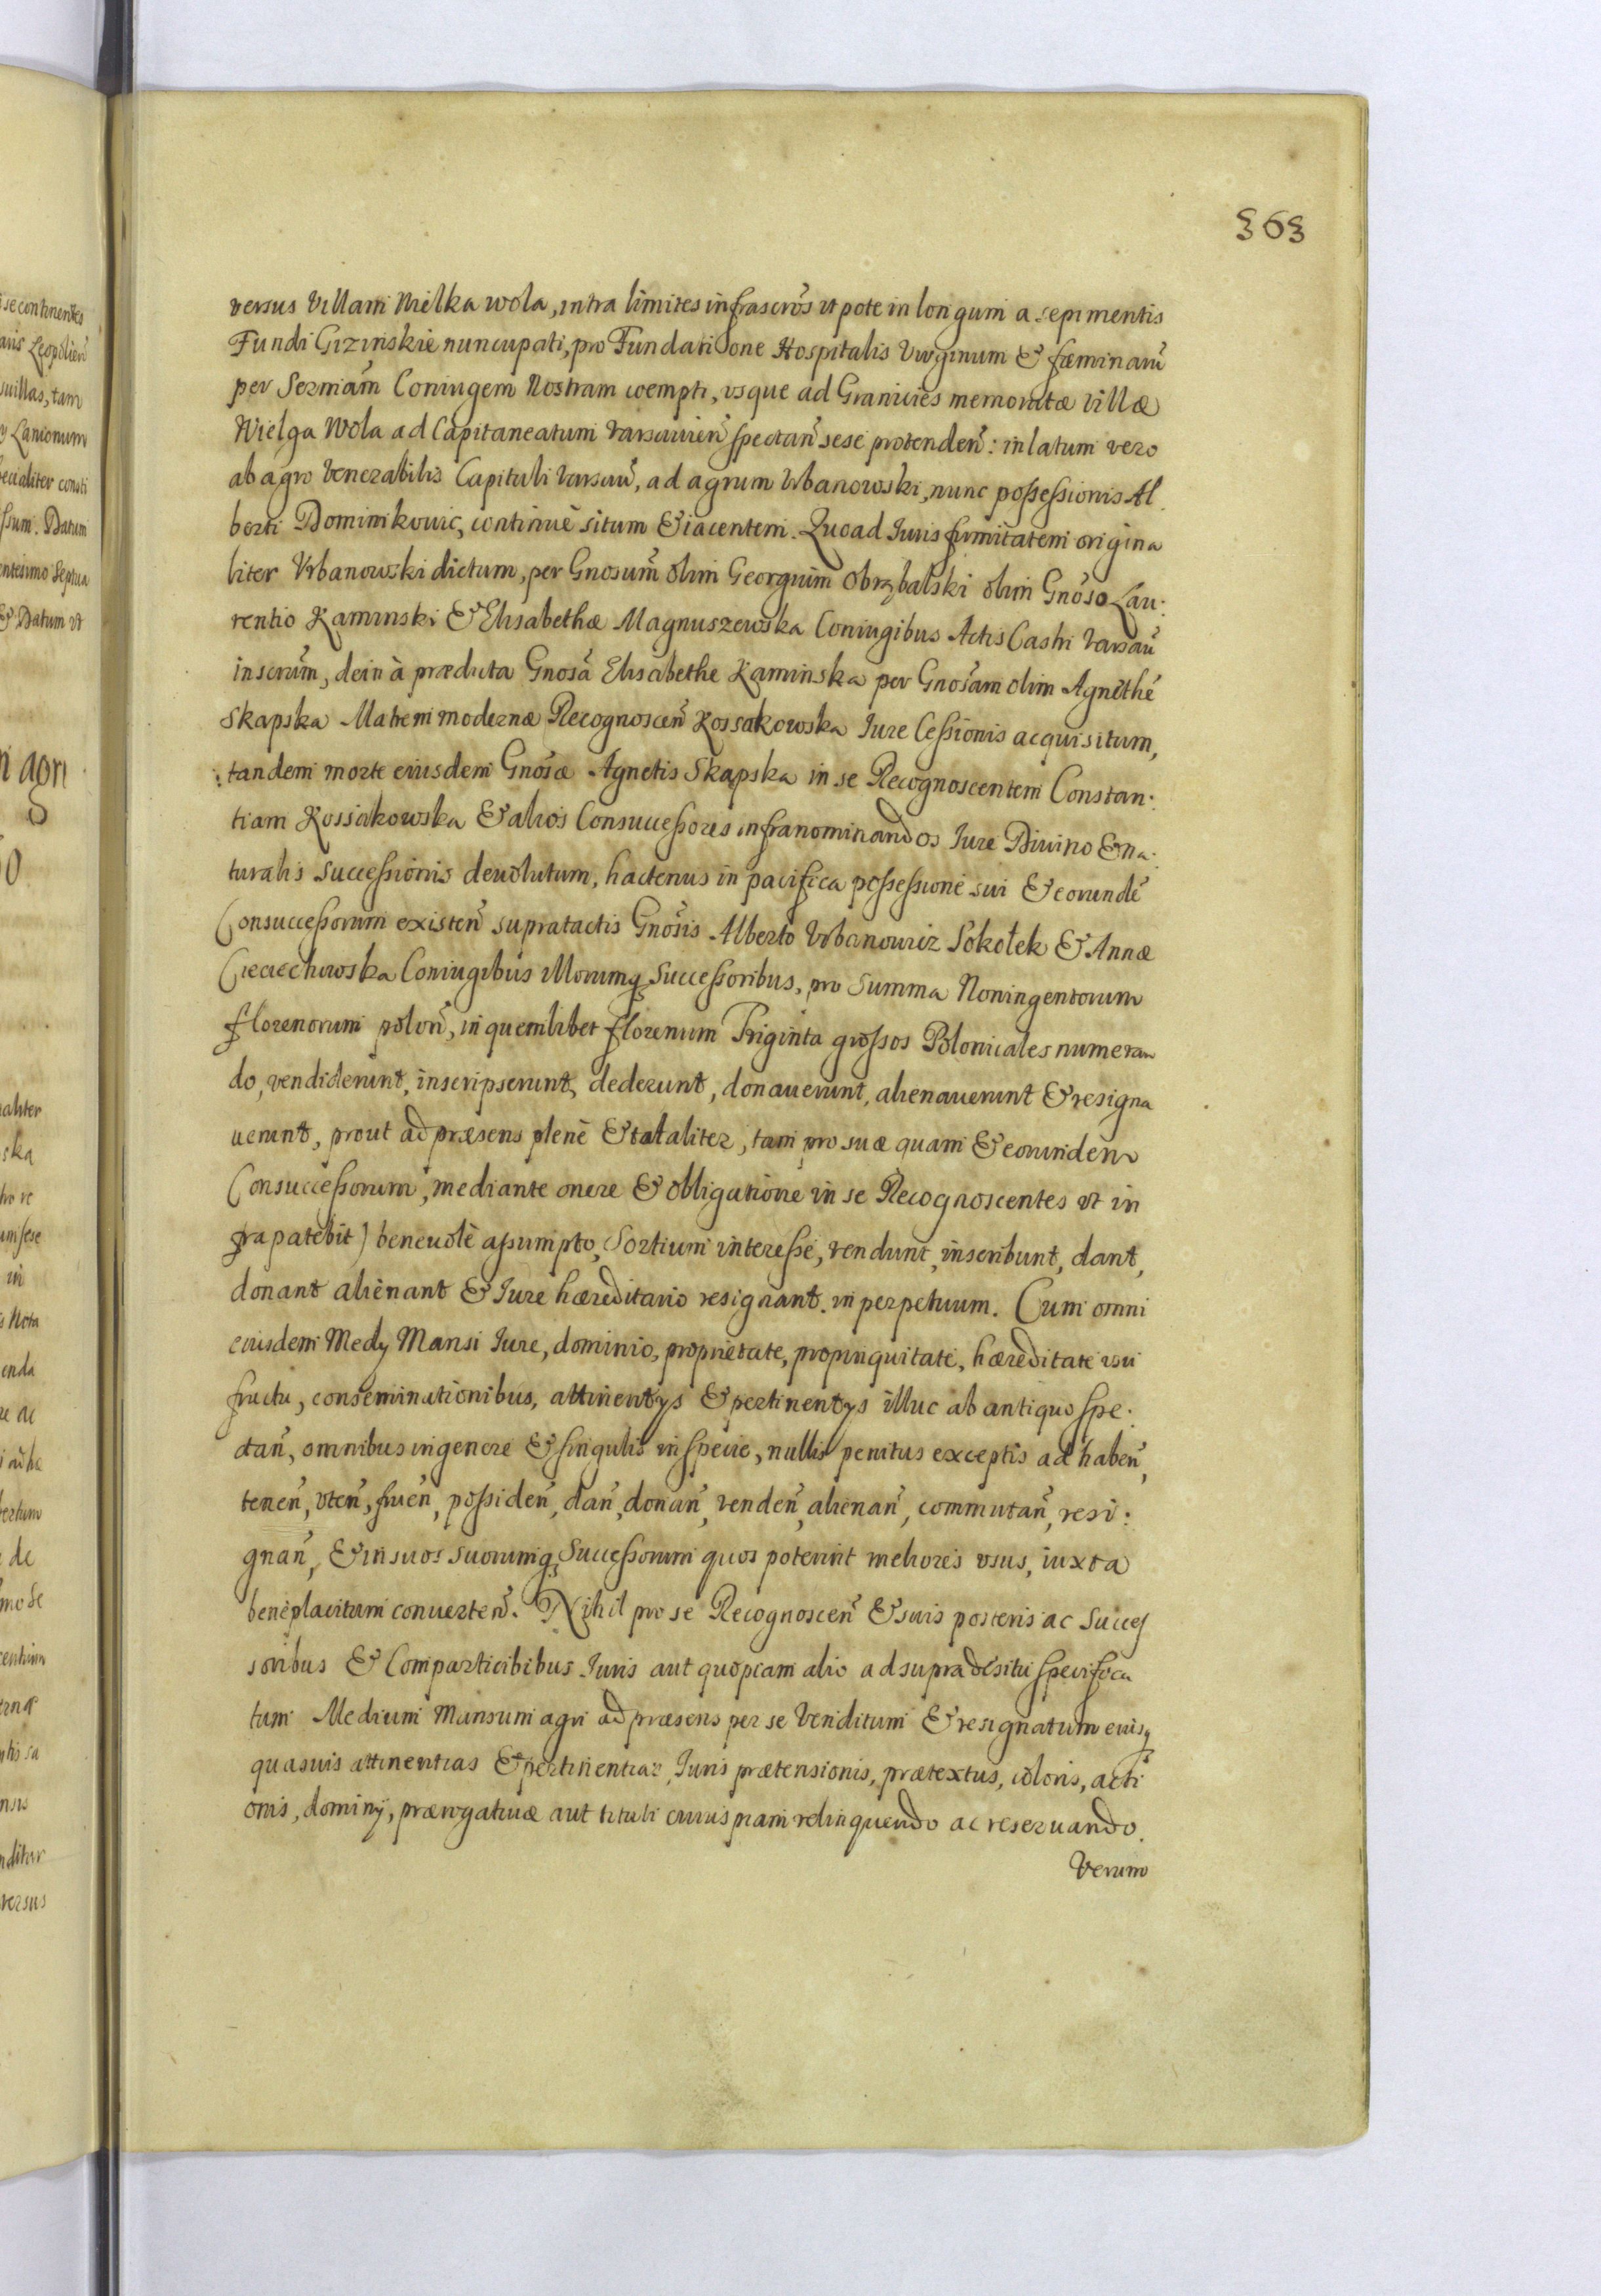 363
versus Villam Wielka wola, intra limites infrascrõs ut pote in longum a sepimentis
Fundi Gizinskie nuncupati, pro Fundatione Hospitalis Virginum & fæminarũ
per Sermãm Coniugem Nostram coempti, vsque ad Granicies memoratæ villæ
Wielga Wola ad Capitaneatum Varsauien̄ spectan̄ sese protenden̄: in latum vero
ab agro Venerabilis Capituli Varsau̅, ad agrum Vrbanowski, nunc possessionis Al
berti Dominikouic, continuè situm & iacentem. Quoad Iuris firmitatem origina
liter Vrbanowski dictum, per Gnosum̃ olim Georgium Obrzbalski olim Gnõso Lau:
rentio Kaminski & Elisabethæ Magnuszewska Coniugibus Actis Castri Varsau̅
inscrum̃, dein à prædicta Gnosã Elisabethe Kaminska per Gnosãm olim Agnethẽ
Skapska Matrem modernæ Recognoscen̄ Kossakowska Iure Cessionis acquisitum,
tandem morte eiusdem Gnõsæ Agnetis Skapska in se Recognoscentem Constan:
tiam Kossakowska & alios Consuccessores infranominandos Iure Diuino & na:
turalis successionis deuolutum, hactenus in pacifica possessione sui & eorundẽ
Consuccessorum existen̄ supratactis Gnõsis Alberto Vrbanowicz Sokołek & Annæ
Cieciechowska Coniugibus illorumq; Successoribus, pro Summa Noningentorum
florenorum polon̄, in quemlibet florenum Triginta grossos Polonicales numeran
do, vendiderunt, inscripserunt, dederunt, donauerunt, alienauerunt & resigna
uerunt, prout ad præsens plenè & totaliter, tam pro suæ quam & eorundem
Consuccessorum, mediante onere & obligatione in se Recognoscentes vt in
fra patebit) beneuolè assumpto, Sortium interesse, vendunt, inscribunt, dant,
donant alienant & Iure hæreditario resignant in perpetuum. Cum omni
eiusdem Medy Mansi Iure, dominio, proprietate, propinquitate, hæreditate vsu
fructu, conseminationibus, attinentys & pertinentys illuc ab antiquo spe:
ctan̄, omnibus in genere & singulis in specie, nullis penitus exceptis ad haben̄,
tenen̄, vten̄, fruen̄, possiden̄, dan̄, donan̄, venden̄, alienan̄, commutan̄, resi:
gnan̄, & in suos suorumq; Successorum quos poterint meliores vsus, iuxta
beneplacitum conuerten̄. Nihil pro se Recognoscen̄ & suis posteris ac Succes
soribus & Comparticibibus Iuris aut quopiam alio ad supra de situ specifica
tum Medium Mansum agri ad præsens per se Venditum & resignatum eiusq;
quasuis attinentias & pertinentias, Iuris prætensionis, prætextus, coloris, acti
onis, dominij, prærogatiuæ aut tituli cuiuspiam relinquendo ac reseruando.
Verum